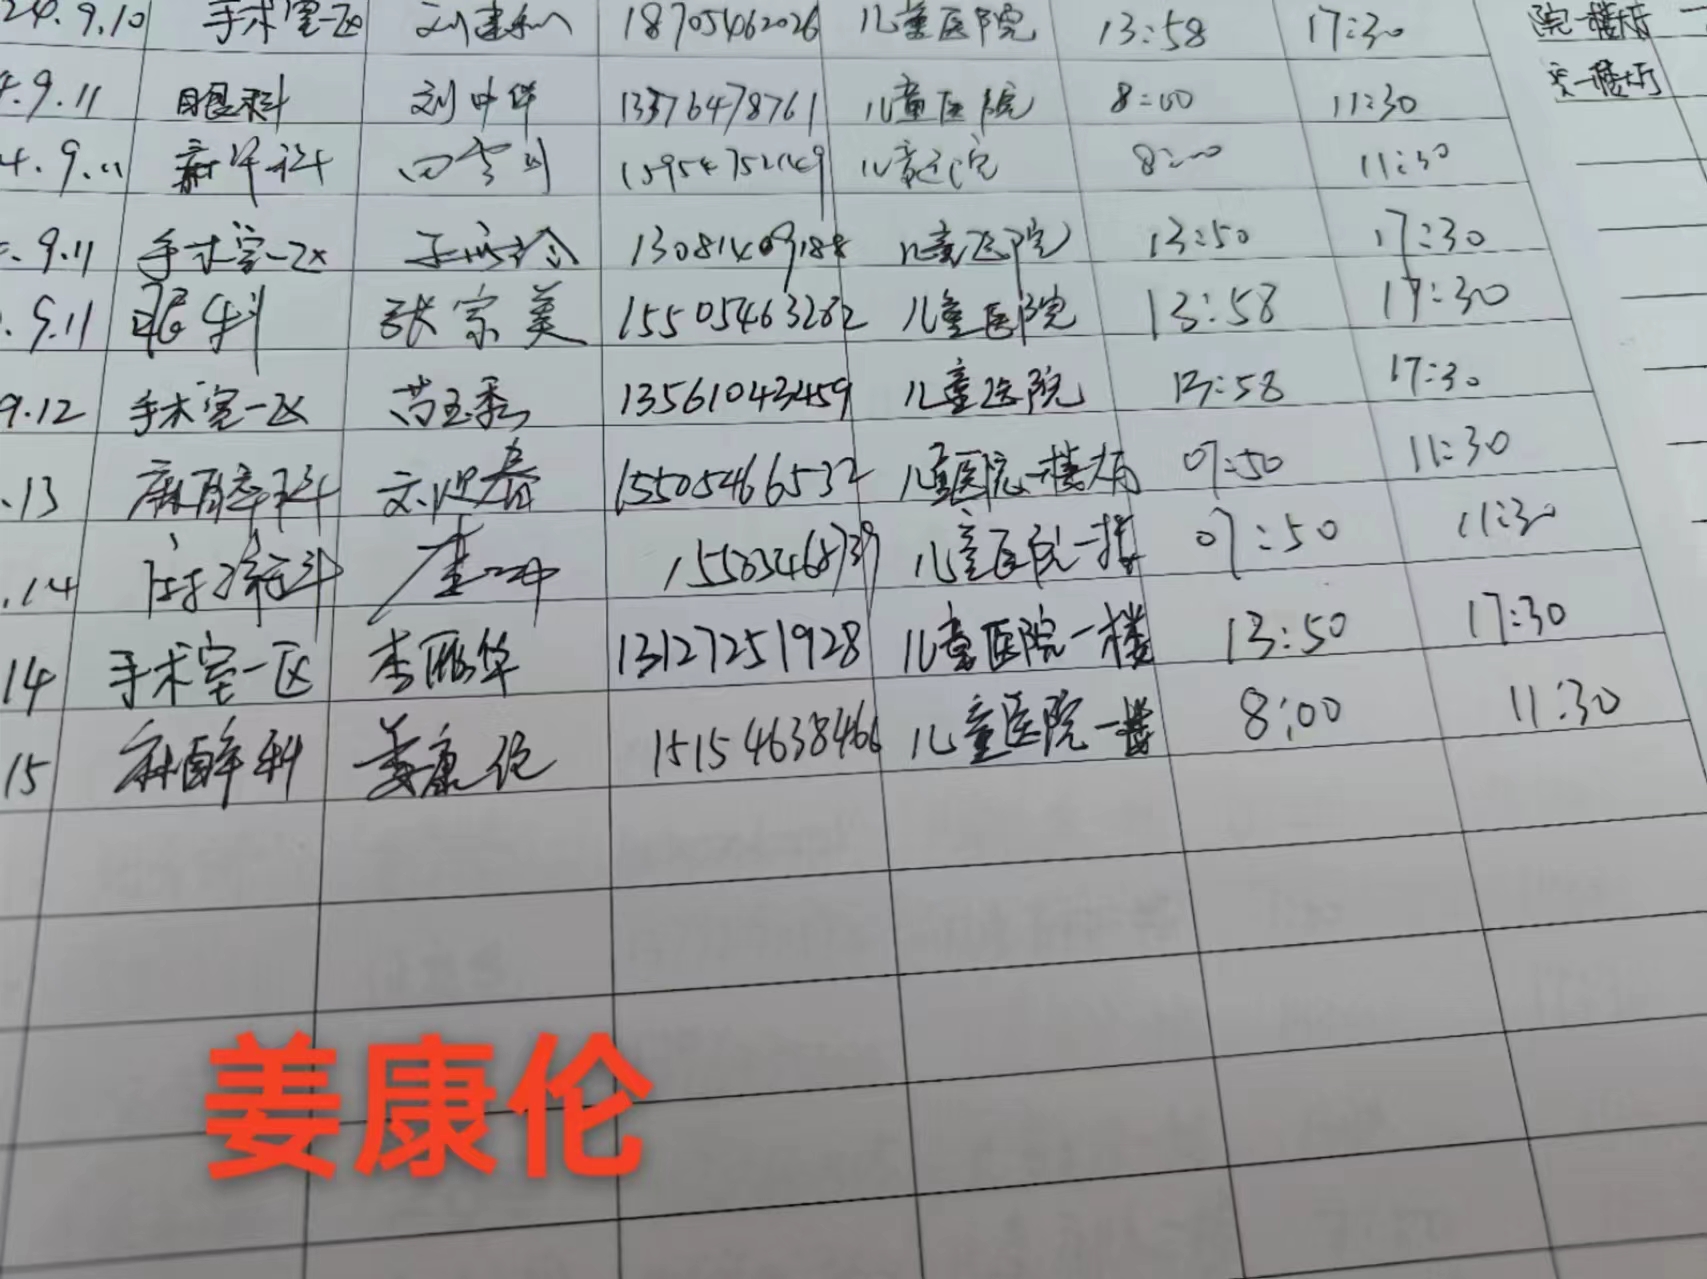 24.9.10 手术室一区 刘建和 18705462026 儿童医院 13:58 17:30 院一楼大厅
4.9.11 眼科 刘中华 13376478761 儿童医院 8:00 11:30 一楼大厅
4.9.11 15954752149 儿童医院 8:00 11:30
9.11 手术室一区 13081409188 儿童医院 13:50 17:30
9.11 眼科 张宗美 15505463282 儿童医院 13:58 17:30
9.12 手术室一区 苗玉秀 13561043459 儿童医院 13:58 17:30
.13 麻醉科 春 15505466532 儿童医院一楼大厅 07:50 11:30
.14 儿童医院一楼 07:50 11:30
14 手术室一区 李丽华 13127251928 儿童医院一楼 13:50 17:30
15 麻醉科 姜康伦 15154638466 儿童医院一楼 8:00 11:30
姜康伦